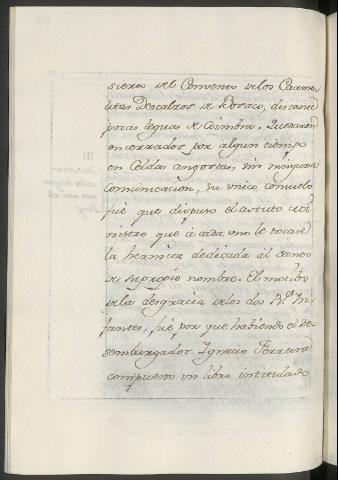 sieron del Convento de los Carme
litas Descalzos de Bosaco, distante
pocas leguas de Coimbra. Quedaron
encerrados por algun tiempo
en Celdas angostas, sin ninguna
comunicacion, su unico consuelo
fué que dispuso el astuto Mi
nistro que á cada uno le tocase
la hermita dedicada al Santo
de su propio nombre. El motibo
de la desgracia de los dos In
fantes, fué por que habiendo el De
sembargador Ignacio Ferreira
compuesto un libro intitulado